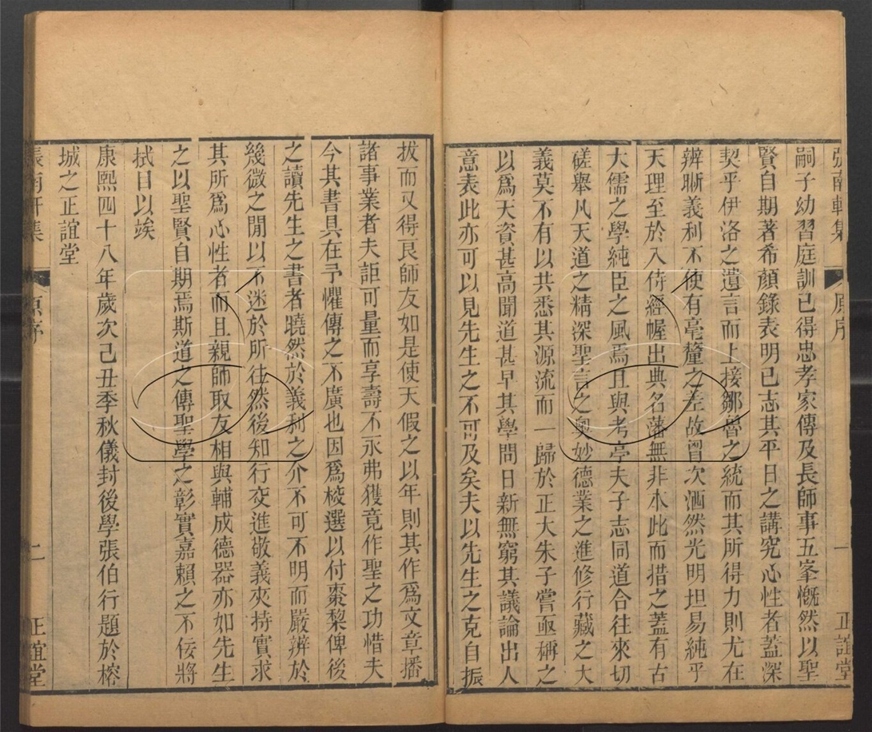 張南軒集
原序
一
正誼堂
嗣子幼習庭訓已得忠孝家傳及長師事五峯慨然以聖
賢自期著希顏錄表明已志其平日之講究心性者蓋深
契乎伊洛之遺言而上接鄒魯之統而其所得力則尤在
辨晰義利不使有毫釐之差故胷次洒然光明坦易純乎
天理至於入侍經幄出典名藩無非本此而措之蓋有古
大儒之學純臣之風焉且與考亭夫子志同道合往來切
磋舉凡天道之精深聖言之奧妙德業之進修行藏之大
義莫不有以共悉其源流而一歸於正大朱子嘗亟稱之
以爲天資甚高聞道甚早其學問日新無窮其議論出人
意表此亦可以見先生之不可及矣夫以先生之克自振
拔而又得良師友如是使天假之以年則其作爲文章播
諸事業者夫詎可量而享壽不永弗獲竟作聖之功惜夫
今其書具在予懼傳之不廣也因爲校選以付棗棃俾後
之讀先生之書者曉然於義利之介不可不明而嚴辨於
幾微之間以不迷於所往然後知行交進敬義夾持實求
其所爲心性者而且親師取友相與輔成德器亦如先生
之以聖賢自期焉斯道之傳聖學之彰實嘉賴之不佞將
拭目以竢
康熙四十八年歲次己丑季秋儀封後學張伯行題於榕
城之正誼堂
張南軒集
原序
二
正誼堂